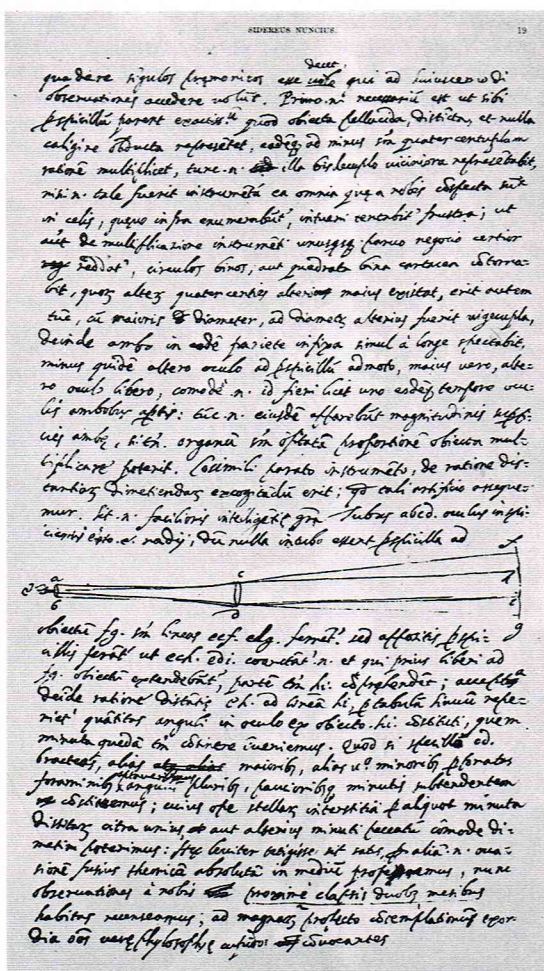 SIDEREUS NUNCIUS. 19
decet,
quadere singulos praemonitos qui ad huiuscemodi
observationes accedere volũt. Primo .n. necessariũ est ut sibi
pspicillũ parent exactiss. quod obiecta pellucida, distincta, et nulla
caligine obducta represẽtet, eadẽq ad minus sm quatercentuplam
rationẽ multiplicet, tunc .n. illa bisdecuplo viciniora represẽtabit,
nisi .n. tale fuerit instrumẽtũ ea omnia quæ a nobis cõspecta sũt
in celis, queve infra enumerabũt', intueri tentabit' frustra; ut
aũt de multiplicatione instrumẽti unusqsq parvo negocio certior
reddat', circulos binos, aut quadrata bina cartacea cõtorna-
bit, quorũ alterũ quatercenties alterum maius existat, erit autem
tũc, cũ maioris diameter, ad diametrũ alterius fuerit vigecupla,
deinde ambo in eadẽ pariete infixa simul à longe spectabit,
minus quidẽ altero oculo ad pspicillũ admoto, maius vero, alte-
ro oculo libero, comodè .n. id fieri licet uno eodẽq tempore ocu-
lis ambobus aptis: tũc .n. eiusdẽ apparebũt magnitudinis supfi-
cies ambę, si tñ. organũ sm optatã proportionẽ obiecta mul-
tiplicare poterit. Cõsimili parato instrumẽto, de ratione dis-
tantiarũ dimetiendarũ excogitãdũ erit; qd tali artificio asseque-
mur. Sit .n. facilioris intelligẽtię gra. Tubus abcd. oculus inspi-
cientis esto .e. radij, dũ nulla in tubo essent pspicilla ad
a c f
e h
b d i
g
obiectũ fg. sm lineas ecf. edg. ferrẽt' sed appositis pspi-
cillis ferãt' ut ech. edi. coarctãt' .n. et qui prius liberi ad
fg. obiectũ extendebãt', partẽ tm hi. cõprehendẽt; accepta
deĩde ratione distãtię eh. ad lineã hi, p tabulã sinuũ repe-
riet' quãtitas anguli in oculo ex obiecto .hi. cõstituti, quem
minuta quędã tm cõtinere ĩveniemus. Quod si specillo cd.
bracteas, alias maioribq, alias vº. minoribq pforatas
foraminibq angulũ pluribq, paucioribq minutis subtendentem
cõstituemus; cuius ope stellarũ interstitia p aliquot minuta
distitarũ citra unius aut alterius minuti peccatũ cõmode di-
metiri poterimus: hęc leviter tetigisse sit satis, p alia .n. oca-
sionẽ fusius theoricã absolutã in mediũ proferemus, nunc
observationes à nobis proximè elapsis duobq mẽsibus
habitas recenseamus; ad magnarũ profecto cõtemplationũ exor-
dia oẽs verę phylosophię cupidos cõvocantes